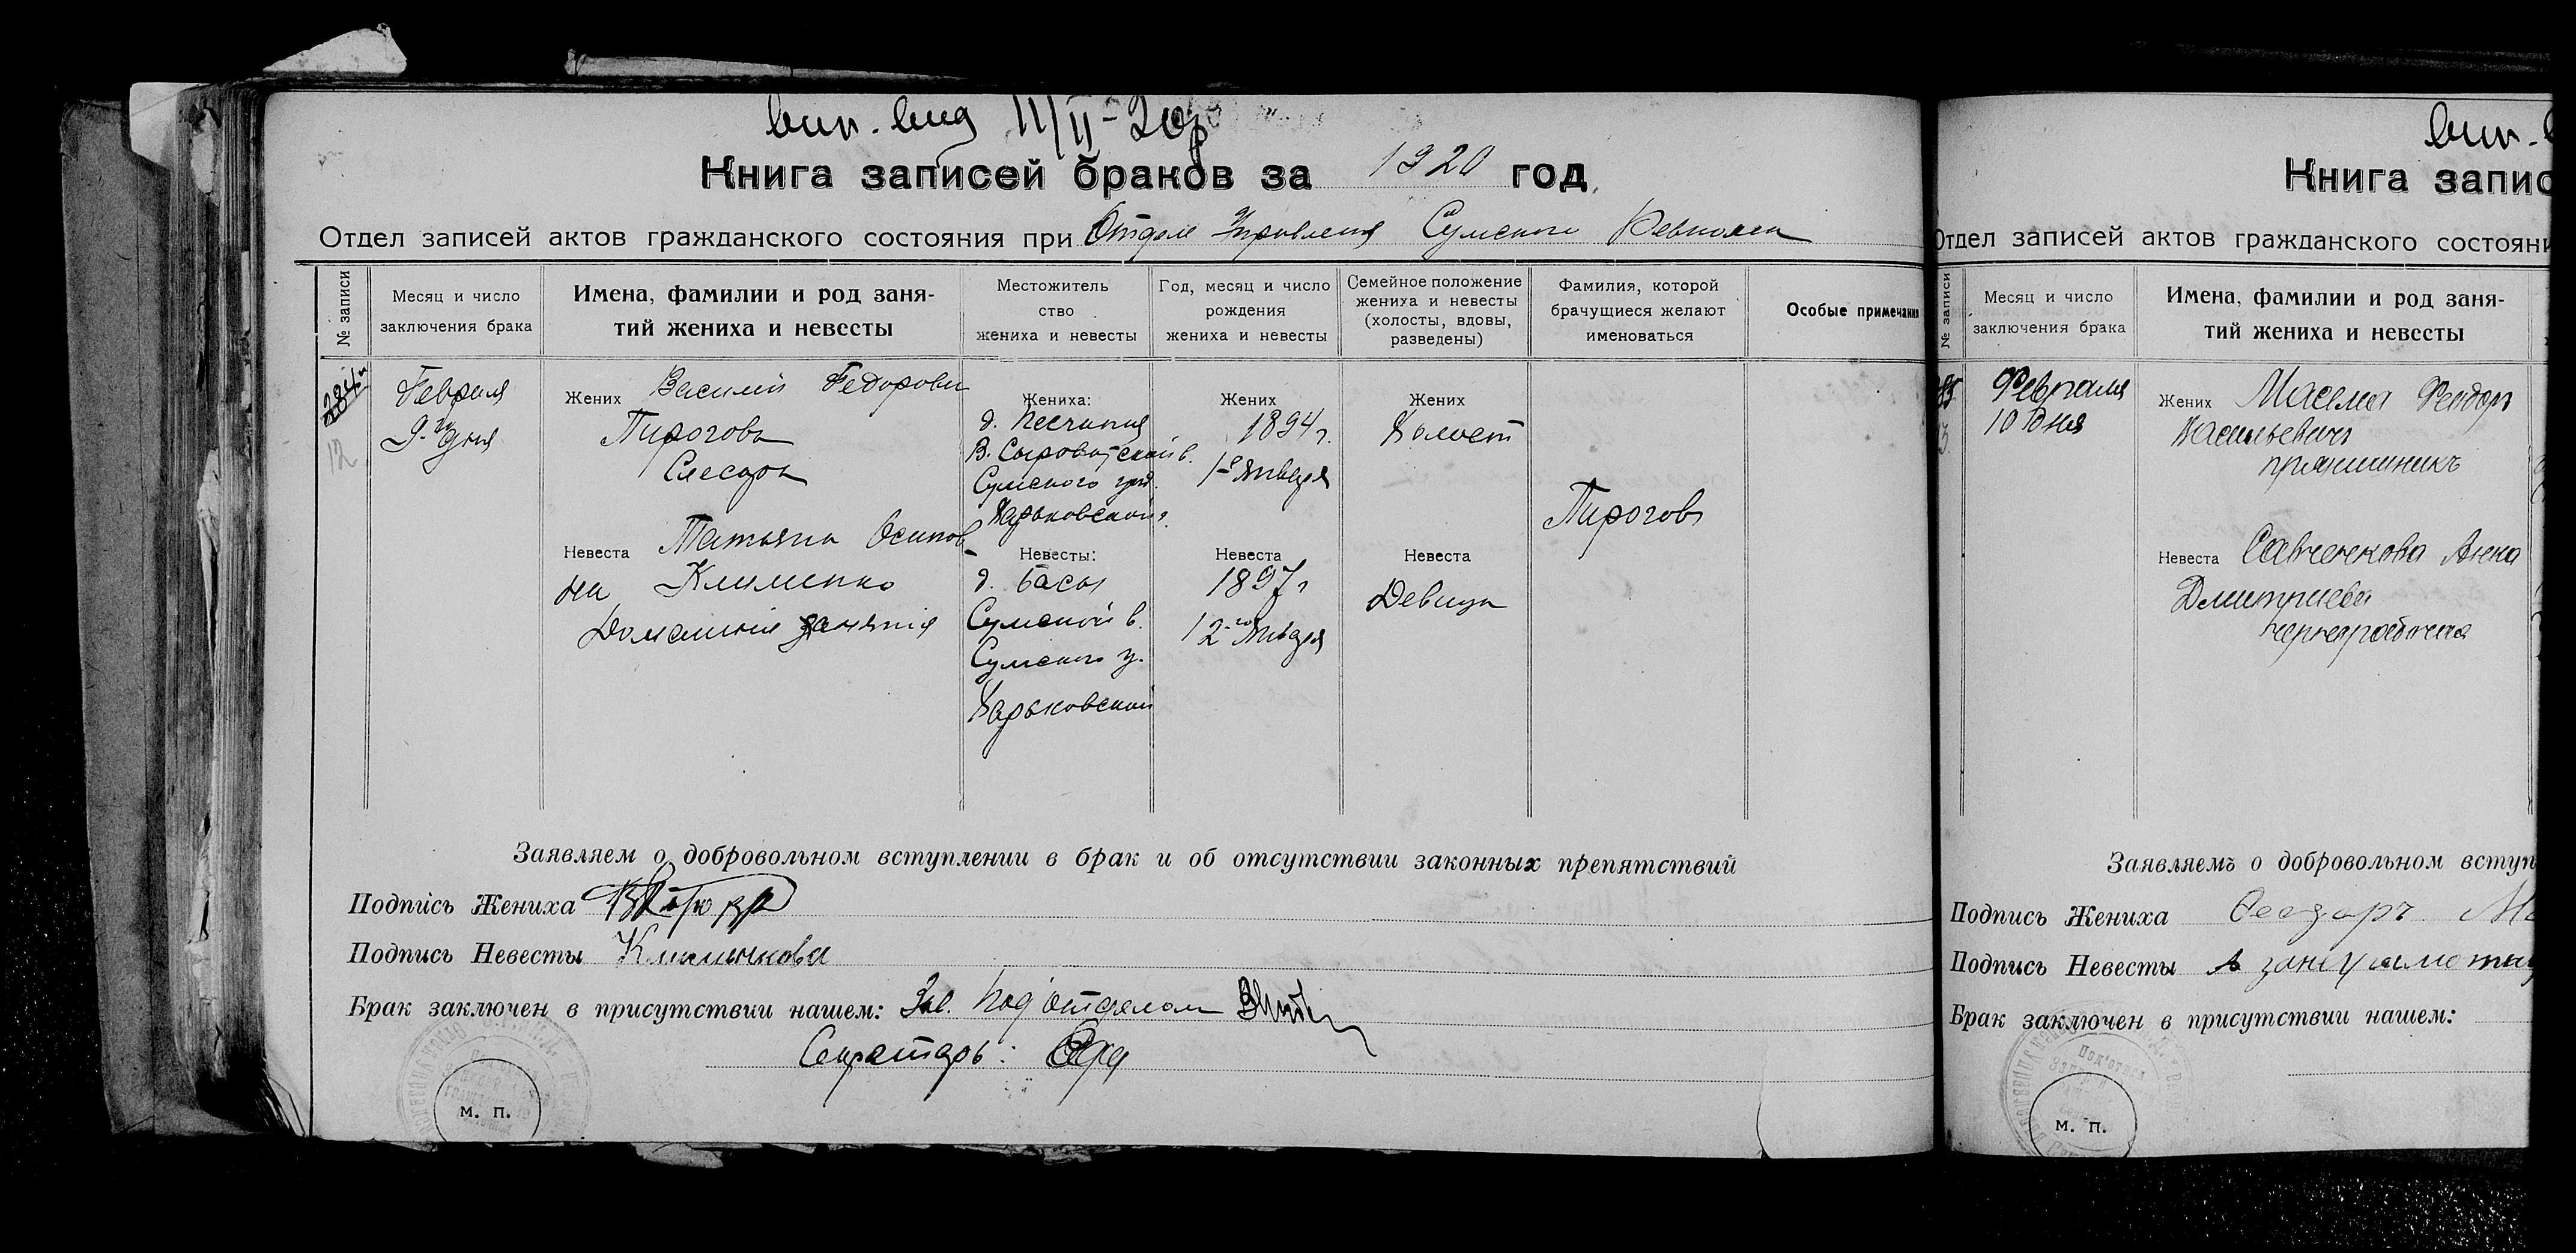 вип. вид 11/II-20р
Книга записей браков за 1920 год
Отдел записей актов гражданского состояния при Отделе Управления Сумского Ревкома
№ записи
Месяц и число
заключения брака
Имена, фамилии и род заня-
тий жениха и невесты
Местожитель
ство
жениха и невесты
Год, месяц и число
рождения
жениха и невесты
Семейное положение
жениха и невесты
(холосты, вдовы,
разведены)
Фамилия, которой
брачущиеся желают
именоваться
Особые примечания
12
Февраля
9-го дня
Жених Василий Федорович
Пирогов
Слесарь
Невеста Татьяна Осипов
на Клименко
Домашния занятия
Жениха:
д. Песчаная
В. Сыроватской в.
Сумского уезд.
Харьковской г.
Невесты:
д. Басы
Сумской в.
Сумского у.
Харьковской
Жених
1894 г.
1-е Января
Невеста
1897 г
12-го Января
Жених
Холост
Невеста
Девица
Пирогов
Заявляем о добровольном вступлении в брак и об отсутствии законных препятствий
Подпись Жениха
Подпись Невесты Клименкова
Брак заключен в присутствии нашем: Зав. Под'отделом
Секретарь:
м. п.
вип.
Книга запис
Отдел записей актов гражданского состояни
№ записи
Месяц и число
заключения брака
Имена, фамилии и род заня-
тий жениха и невесты
85
Февраля
10 дня
Жених Фендор
Васильевич
Невеста Савченкова Анна
Дмитриева
чернорабочая
Заявляемъ о добровольном вступ
Подпись Жениха Феодоръ
Подпись Невесты А за неграмотн
Брак заключен в присутствии нашем:
Под'отдел
м. п.